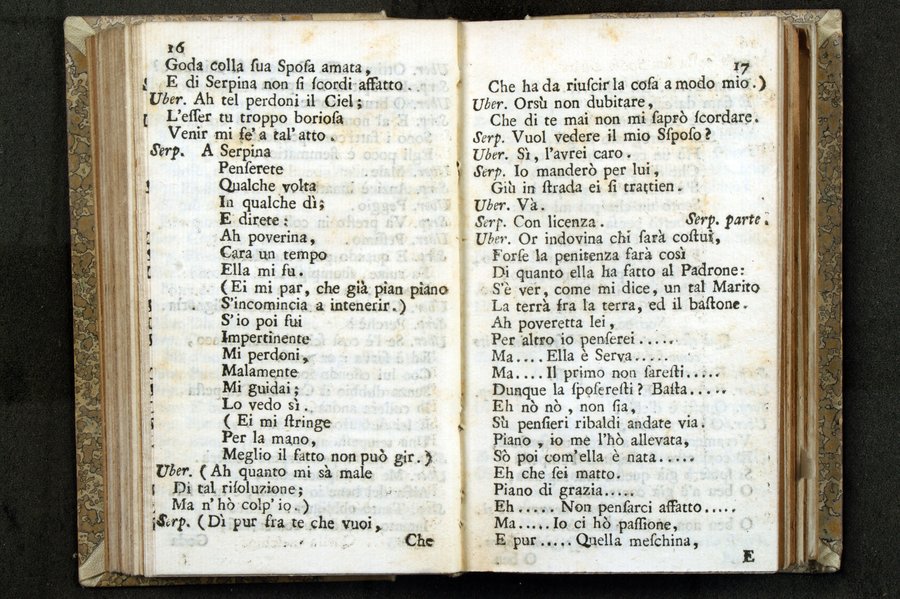 16
Goda colla ſua Spoſa amata,
E di Serpina non ſi ſcordi affatto.
Uber. Ah tel perdoni il Ciel;
L'eſſer tu troppo borioſa
Venir mi fe' a tal' atto.
Serp. A Serpina
Penſerete
Qualche volta
In qualche dì;
E direte:
Ah poverina,
Cara un tempo
Ella mi fu.
(Ei mi par, che già pian piano
S'incomincia a intenerir.)
S'io poi fui
Impertinente
Mi perdoni,
Malamente
Mi guidai;
Lo vedo sì.
(Ei mi ſtringe
Per la mano,
Meglio il fatto non può gir.)
Uber. (Ah quanto mi sà male
Di tal riſoluzione;
Ma n'hò colp'io.)
Serp. (Dì pur fra te che vuoi,
Che
17
Che ha da riuſcir la coſa a modo mio.)
Uber. Orsù non dubitare,
Che di te mai non mi ſaprò ſcordare.
Serp. Vuol vedere il mio Sſpoſo?
Uber. Sì, l'avrei caro.
Serp. Io manderò per lui,
Giù in ſtrada ei ſi trattien.
Uber. Và.
Serp. Con licenza. Serp. parte.
Uber. Or indovina chi ſarà coſtui,
Forſe la penitenza farà così
Di quanto ella ha fatto al Padrone:
S'è ver, come mi dice, un tal Marito
La terrà fra la terra, ed il baſtone.
Ah poveretta lei,
Per altro io penſerei.....
Ma.... Ella è Serva.....
Ma.... Il primo non ſareſti.....
Dunque la ſpoſereſti? Baſta.....
Eh nò nò, non ſia,
Sù penſieri ribaldi andate via.
Piano, io me l'hò allevata,
Sò poi com'ella è nata.....
Eh che ſei matto.
Piano di grazia.....
Eh..... Non penſarci affatto.....
Ma..... Io ci hò paſſione,
E pur..... Quella meſchina,
E